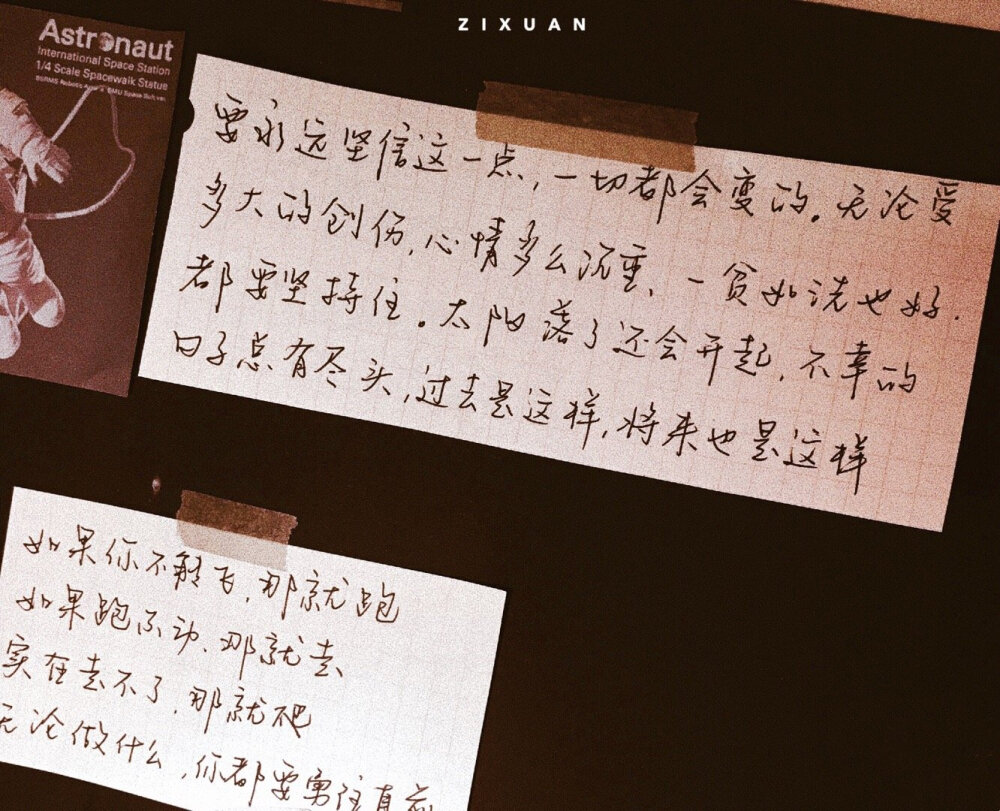 ZIXUAN
Astronaut
International Space Station
1/4 Scale Spacewalk Statue
要永远坚信这一点,一切都会变的。无论受
多大的创伤,心情多么沉重、一贫如洗也好.
都要坚持住。太阳落了还会升起,不幸的
日子总有尽头,过去是这样,将来也是这样
如果你不能飞,那就跑
如果跑不动、那就走
实在走不了,那就爬
无论做什么,你都要勇往直前